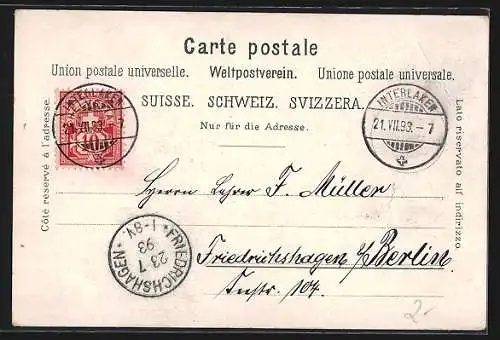 Carte postale
Union postale universelle. Weltpostverein. Unione postale universale.
SUISSE. SCHWEIZ. SVIZZERA.
Nur für die Adresse.
Côté réservé à l'adresse.
Lato riservato all' indirizzo.
INTERLAKEN
21.VII.93.-7
10
INTERLAKEN
21.VII.93.-7
Herrn Lehrer F. Müller
Friedrichshagen b/Berlin
104.
FRIEDRICHSHAGEN
23.7
93
1-8V.
2-